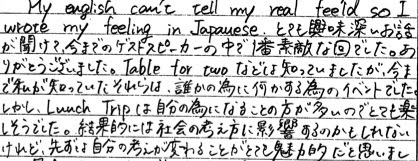 My english can't tell my real feeld so I
wrote my feeling in Japanese. とても興味深いお話
が聞けて今までのゲストスピーカーの中で1番素敵な回でした。あ
りがとうございました。Table for twoなどは知っていましたが、今ま
で私が知っていたそれらは、誰かの為に何かする為のイベントでした。
しかし、Lunch Tripは自分の為になることの方が多いのでとても楽
しそうでした。結果的には社会の考え方に影響するのかもしれない
けれど、先ずは自分の考えが変わることがとても魅力的だと思いまし